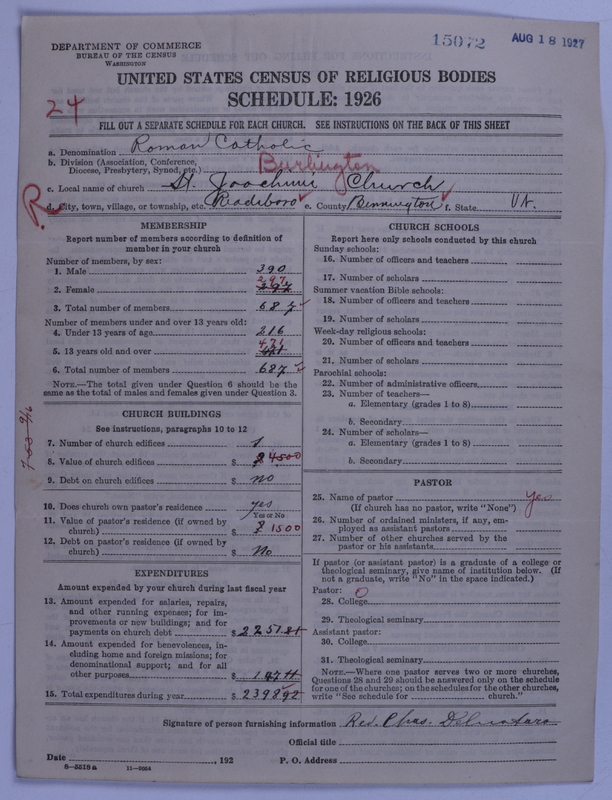 15072 AUG 18 1927
DEPARTMENT OF COMMERCE
BUREAU OF THE CENSUS
WASHINGTON
UNITED STATES CENSUS OF RELIGIOUS BODIES
SCHEDULE: 1926
24
FILL OUT A SEPARATE SCHEDULE FOR EACH CHURCH. SEE INSTRUCTIONS ON THE BACK OF THIS SHEET
a. Denomination Roman Catholic
b. Division (Association, Conference,
Diocese, Presbytery, Synod, etc.) Burlington
c. Local name of church St. Joachim Church
R
d. City, town, village, or township, etc. Readsboro e. County Bennington f. State Vt.
MEMBERSHIP
Report number of members according to definition of
member in your church
Number of members, by sex:
1. Male 390
2. Female 297
3. Total number of members 687
Number of members under and over 13 years old:
4. Under 13 years of age 216
5. 13 years old and over 471
6. Total number of members 687
NOTE.—The total given under Question 6 should be the
same as the total of males and females given under Question 3.
CHURCH BUILDINGS
See instructions, paragraphs 10 to 12
7. Number of church edifices 1
8. Value of church edifices $ 4500
9. Debt on church edifices $ no
10. Does church own pastor's residence yes
Yes or No
11. Value of pastor's residence (if owned by
church) $ 1500
12. Debt on pastor's residence (if owned by
church) $ No
EXPENDITURES
Amount expended by your church during last fiscal year
13. Amount expended for salaries, repairs,
and other running expenses; for im-
provements or new buildings; and for
payments on church debt $ 2251
14. Amount expended for benevolences, in-
cluding home and foreign missions; for
denominational support; and for all
other purposes $ 147
15. Total expenditures during year $ 239892
CHURCH SCHOOLS
Report here only schools conducted by this church
Sunday schools:
16. Number of officers and teachers
17. Number of scholars
Summer vacation Bible schools:
18. Number of officers and teachers
19. Number of scholars
Week-day religious schools:
20. Number of officers and teachers
21. Number of scholars
Parochial schools:
22. Number of administrative officers
23. Number of teachers—
a. Elementary (grades 1 to 8)
b. Secondary
24. Number of scholars—
a. Elementary (grades 1 to 8)
b. Secondary
PASTOR
25. Name of pastor yes
(If church has no pastor, write "None")
26. Number of ordained ministers, if any, em-
ployed as assistant pastors
27. Number of other churches served by the
pastor or his assistants
If pastor (or assistant pastor) is a graduate of a college or
theological seminary, give name of institution below. (If
not a graduate, write "No" in the space indicated.)
Pastor: O
28. College
29. Theological seminary
Assistant pastor:
30. College
31. Theological seminary
NOTE.—Where one pastor serves two or more churches,
Questions 28 and 29 should be answered only on the schedule
for one of the churches; on the schedules for the other churches,
write "See schedule for church."
Signature of person furnishing information Rev. Chas.
Official title
Date , 192 P. O. Address
8—5518 a 11—9664